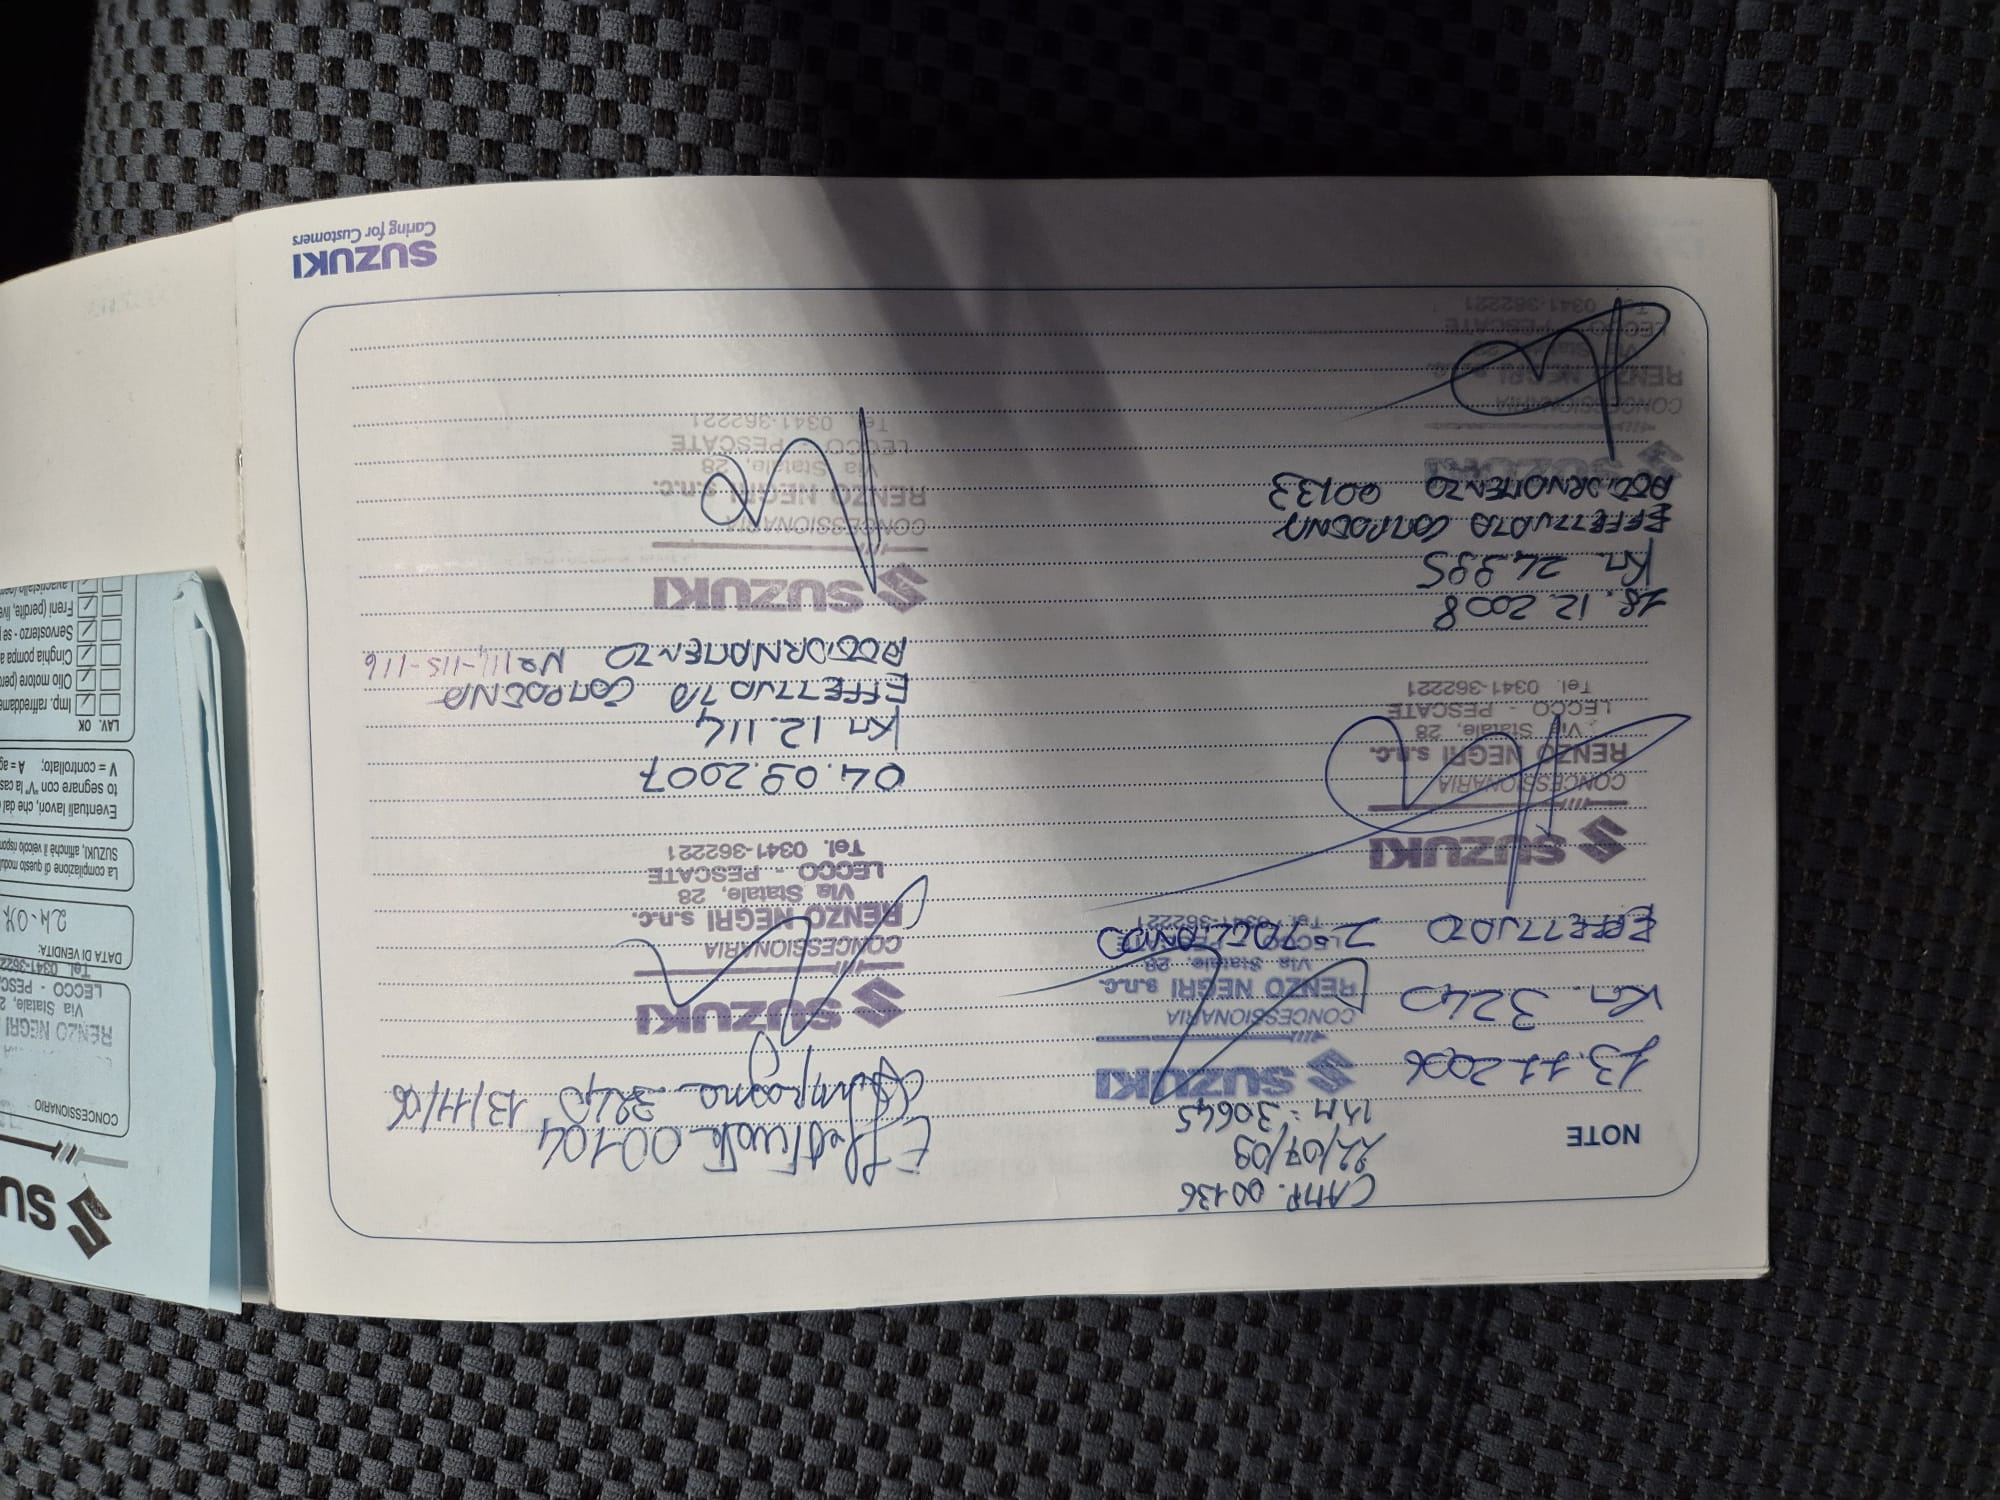 NOTE
13.11.2006
Km. 3240
EFFETTUATO 2° TAGLIANDO
SUZUKI
CONCESSIONARIA
RENZO NEGRI s.n.c.
Via Statale, 28
LECCO - PESCATE
Tel. 0341-362221
18.12.2008
Km. 24.995
EFFETTUATA CAMPAGNA
AGGIORNAMENTO 00133
SUZUKI
CONCESSIONARIA
RENZO NEGRI s.n.c.
Via Statale, 28
LECCO - PESCATE
Tel. 0341-362221
CAMP. 00136
22/07/09
KM = 30645
SUZUKI
CONCESSIONARIA
RENZO NEGRI s.n.c.
Via Statale, 28
LECCO - PESCATE
Tel. 0341-362221
Effettuata 00104
Campagna 3240 13/11/06
SUZUKI
CONCESSIONARIA
RENZO NEGRI s.n.c.
Via Statale, 28
LECCO - PESCATE
Tel. 0341-362221
04.09.2007
Km 12.114
EFFETTUATA CAMPAGNA
AGGIORNAMENTO N° 114-115-116
SUZUKI
CONCESSIONARIA
RENZO NEGRI s.n.c.
Via Statale, 28
LECCO - PESCATE
Tel. 0341-362221
SUZUKI
Caring for Customers
SU
CONCESSIONARIO
RENZO NEGRI
Via Statale, 2
LECCO - PESCA
Tel. 0341-3622
DATA DI VENDITA:
24-07
La compilazione di questo modulo
SUZUKI, affinché il veicolo rispon
Eventuali lavori, che dal
to segnare con "V" la cas
V = controllato; A = ag
LAV. OK
Imp. raffreddame
Olio motore (perd
Cinghia pompa a
Servosterzo - se p
Freni (perdite, live